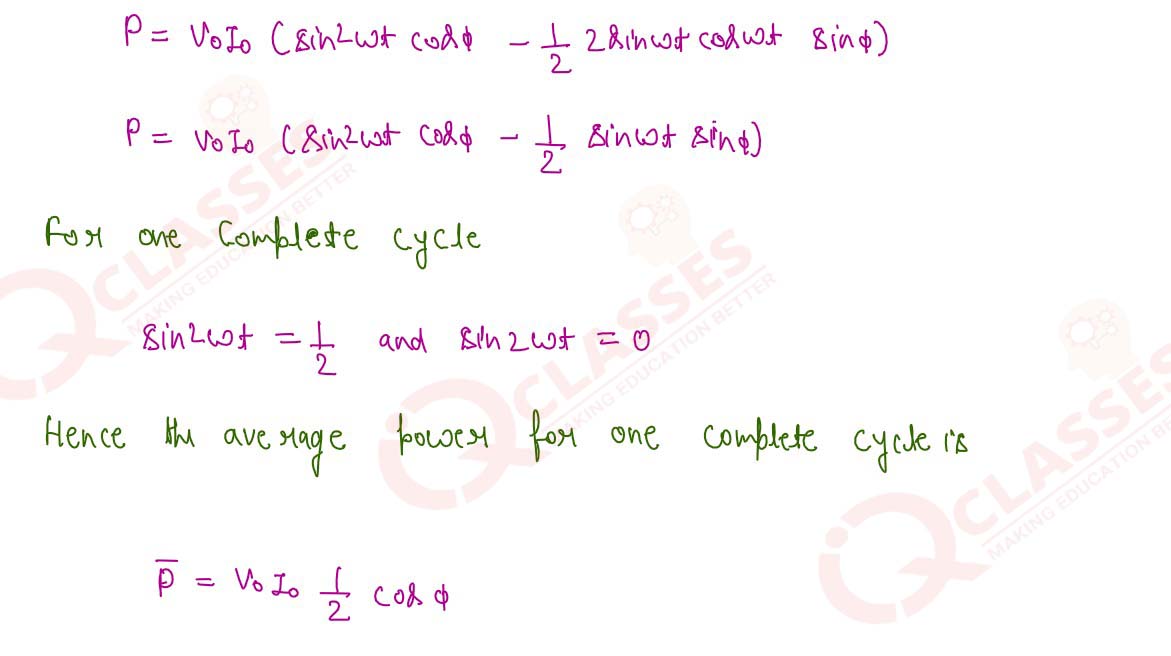 P = V₀I₀ (sin2ωt cosϕ - 1/2 2sinωt cosωt sinϕ)
P = V₀I₀ (sin2ωt cosϕ - 1/2 sinωt sinϕ)
For one Complete cycle
sin2ωt = 1/2 and sin2ωt = 0
Hence the average power for one complete cycle is
P̅ = V₀I₀ 1/2 cosϕ
IQ CLASSES
MAKING EDUCATION BETTER
IQ CLASSES
MAKING EDUCATION BETTER
IQ CLASSES
MAKING EDUCATION BETTER